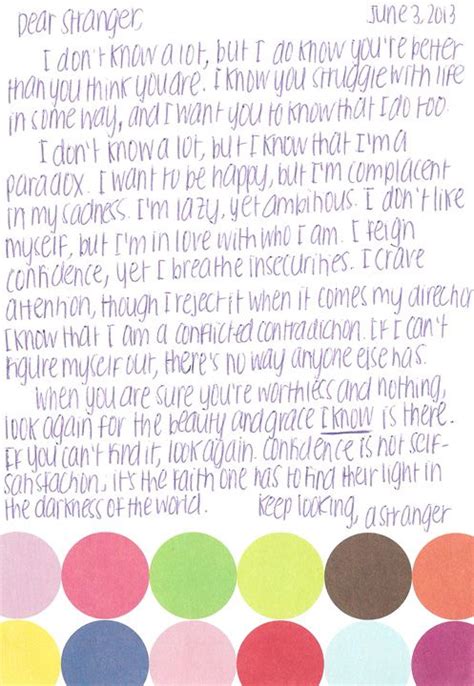 Dear Stranger, June 3, 2013
I don't know a lot, but I do know you're better
than you think you are. I know you struggle with life
in some way, and I want you to know that I do too.
I don't know a lot, but I know that I'm a
paradox. I want to be happy, but I'm complacent
in my sadness. I'm lazy, yet ambitious. I don't like
myself, but I'm in love with who I am. I feign
confidence, yet I breathe insecurities. I crave
attention, though I reject it when it comes my direction
I know that I am a conflicted contradiction. If I can't
figure myself out, there's no way anyone else has.
When you are sure you're worthless and nothing,
look again for the beauty and grace I know is there.
If you can't find it, look again. Confidence is not self-
satisfaction, it's the faith one has to find their light in
the darkness of the world. Keep looking, a stranger